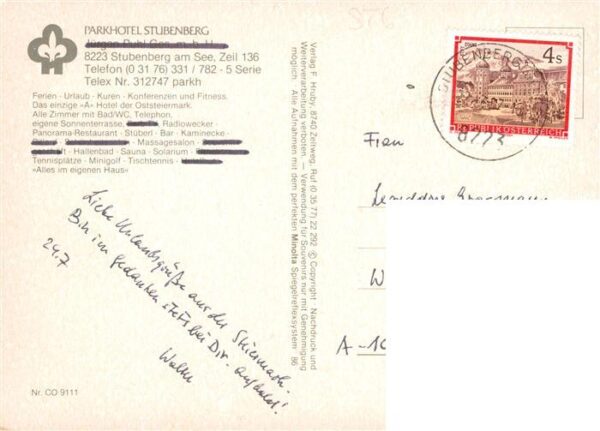 PARKHOTEL STUBENBERG
8223 Stubenberg am See, Zeil 136
Telefon (0 31 76) 331 / 782 - 5 Serie
Telex Nr. 312747 parkh
Ferien - Urlaub - Kuren - Konferenzen und Fitness.
Das einzige »A« Hotel der Oststeiermark.
Alle Zimmer mit Bad/WC, Telephon,
eigene Sonnenterrasse, Radiowecker -
Panorama-Restaurant - Stüberl - Bar - Kaminecke
Massagesalon -
Hallenbad - Sauna - Solarium -
Tennisplätze - Minigolf - Tischtennis
»Alles im eigenen Haus«
Liebe Urlaubsgrüße aus der Steiermark.
Bin im Gedanken stets bei Dir
24.7
Nr. CO 9111
Verlag F. Hruby, 8740 Zeltweg, Ruf (0 35 77) 22 292 © Copyright Nachdruck und
Weiterverarbeitung verboten. — Verwendung für Souvenirs nur mit Genehmigung
möglich. Alle Aufnahmen mit dem perfekten Minolta Spiegelreflexsystem 86
STUBENBERG
4 S
REPUBLIK ÖSTERREICH
Frau
W
A-10